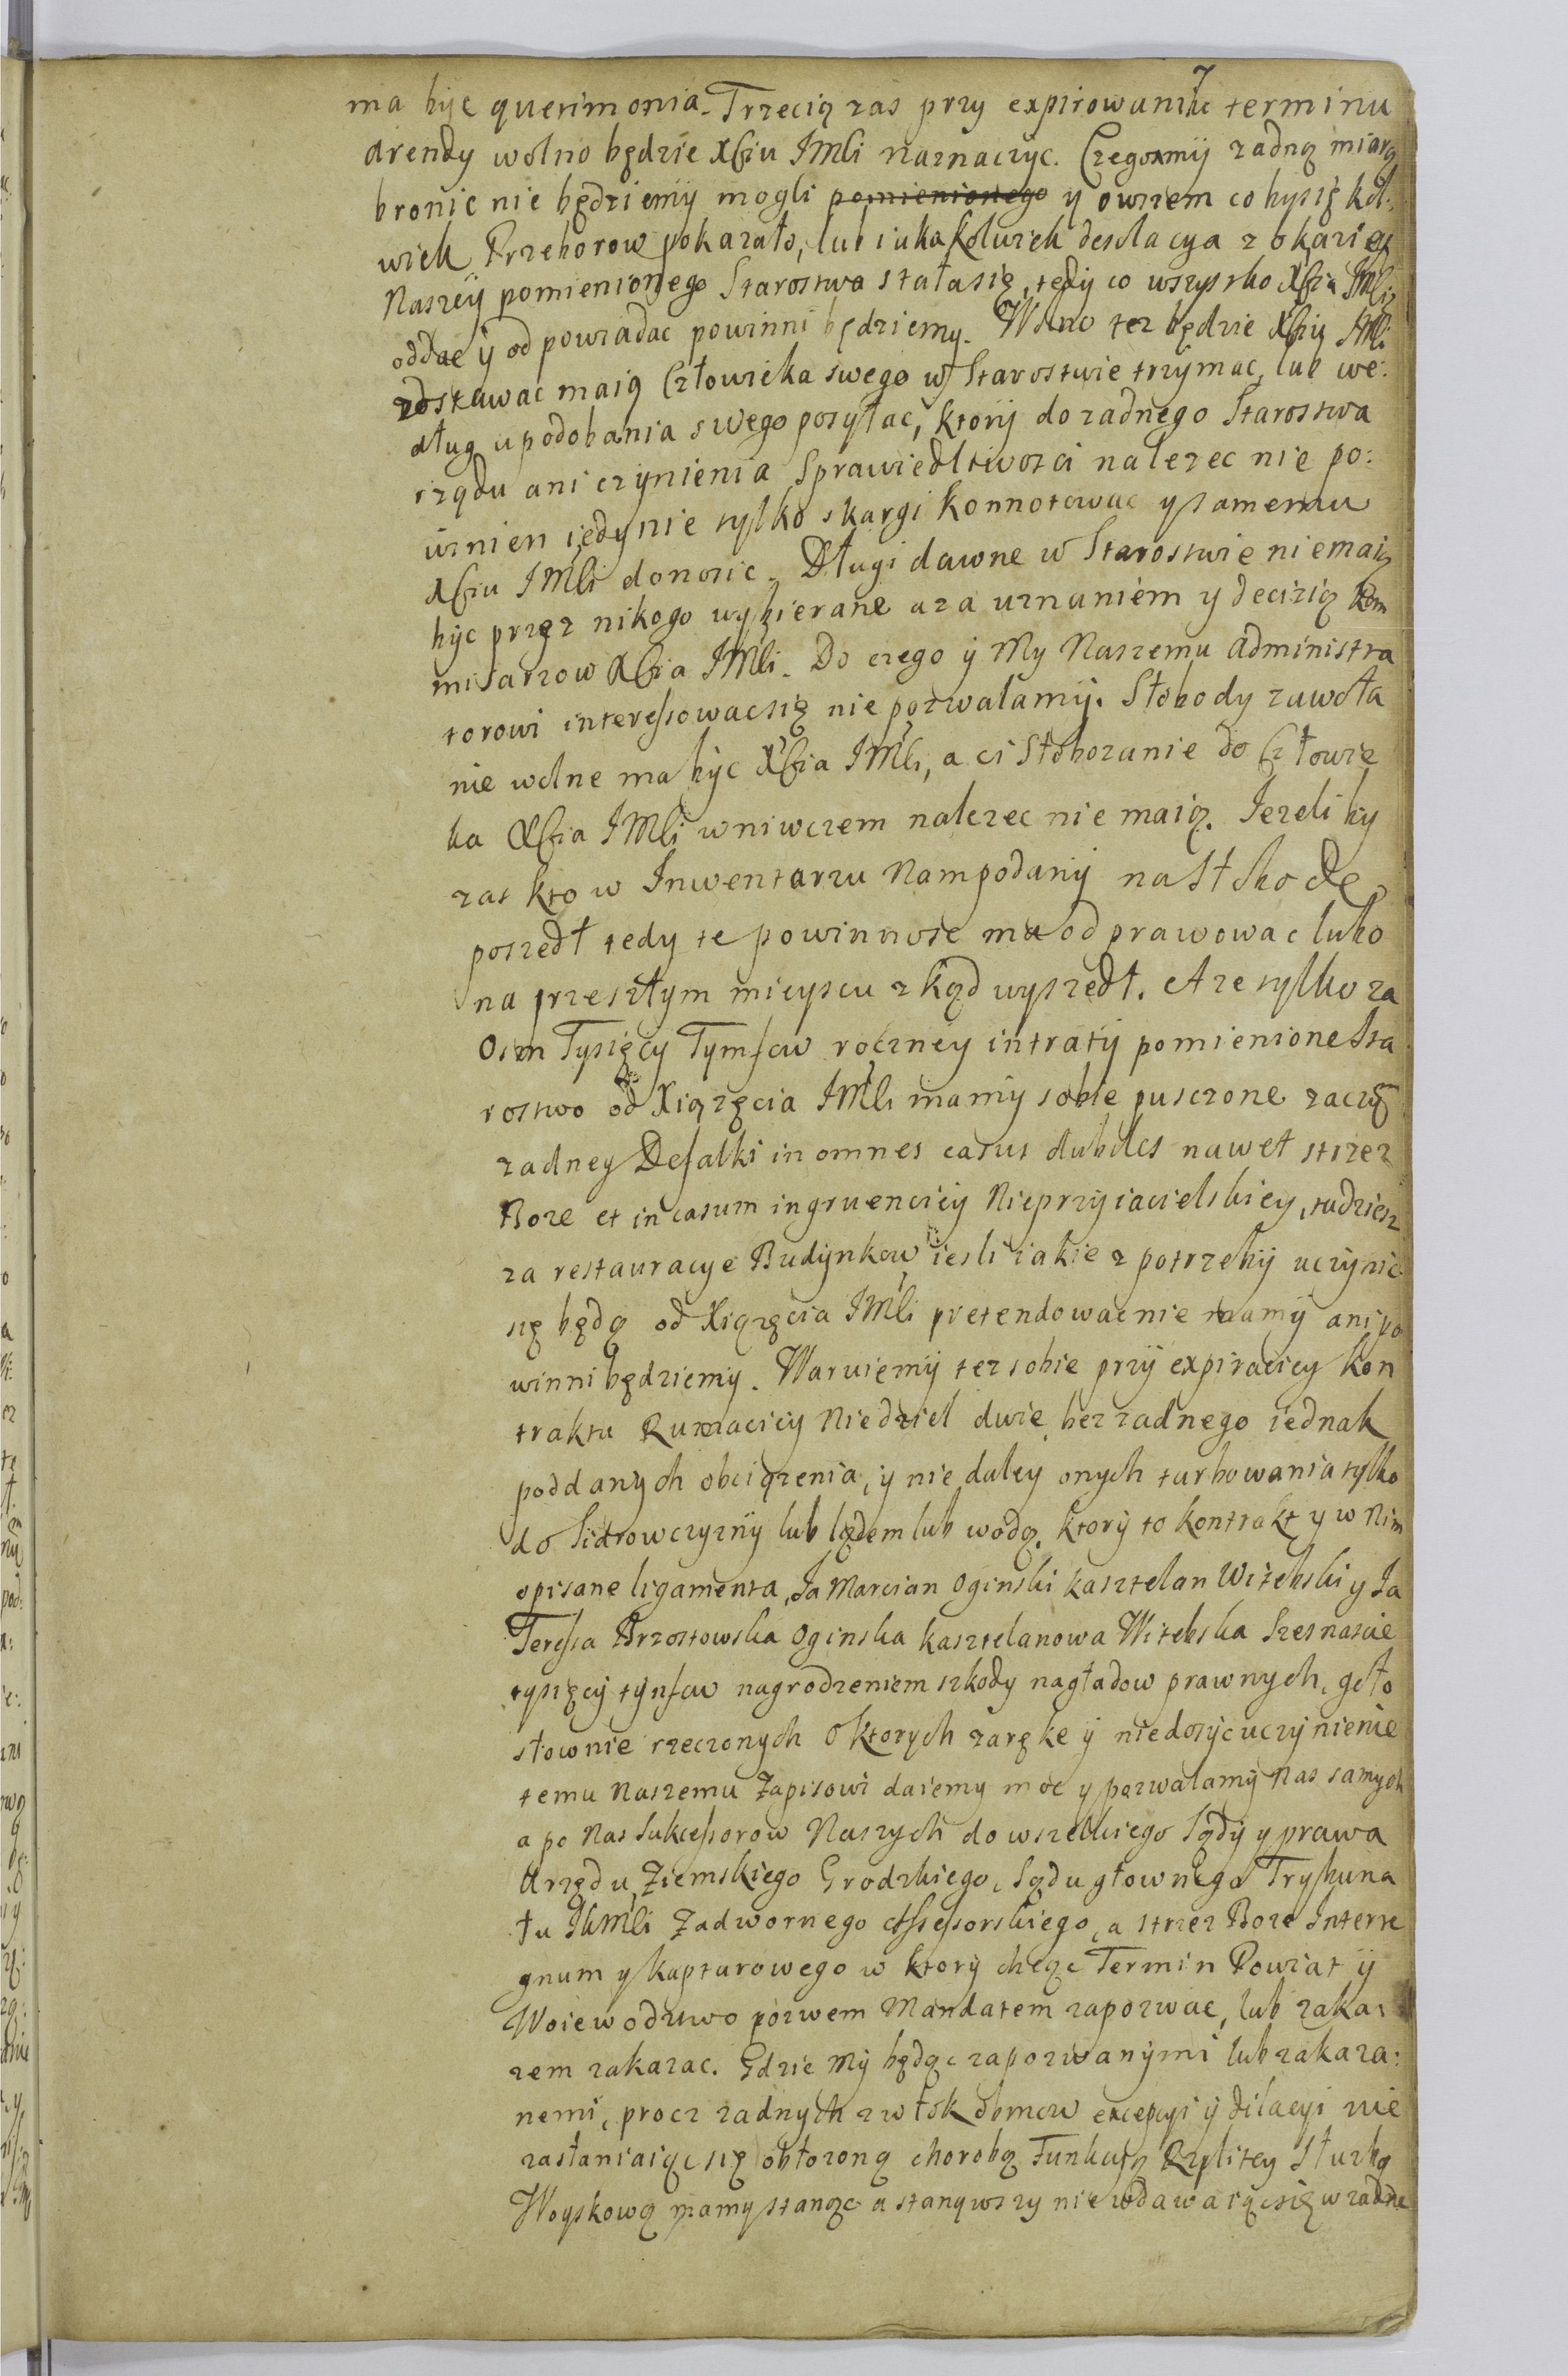 7
ma byc querimonia. Trzecią zas przy expirowaniu terminu
arendy wolno będzie Xściu JMści naznaczyc. Czego my zadną miarą
bronic nie będziemy mogli pomienionego y owszem co bysię kol:
wiek Przeborow pokazało, lub iaka kolwiek desolacya z okazięy
Naszey pomienionego Starostwa stałasię, tedy co wszystko Xścia JMści
oddac y odpowiadac powinni będziemy. Wolno tez będzie Xściu JMści
zostawac maią Człowieka swego w Starostwie trzymac, lub we:
dług upodobania swego posyłac, ktory do zadnego Starostwa
rządu ani czynienia Sprawiedliwosci nalezec nie po:
winien iedynie tylko skargi konnotowac y samemu
Xściu JMści donosic. Długi dawne w Starostwie niemaią
byc przez nikogo wybierane aza uznaniem y decizią kom
misarzow Xścia JMści. Do czego y My Naszemu Administra
torowi interessowacsię nie pozwalamy. Słobody zawoła
nie wolne ma byc Xścia JMści, a ci Słobozanie do Człowie
ka Xścia JMści wniwczem nalezec nie maią. Jezeli by
zas kto w Inwentarzu Nampodany na Słobodę
poszedł tedy te powinnosc ma odprawowac lubo
na przeszłym mieyscu zkąd wyszedł. A ze tylko za
Osm Tysięcy Tymfow roczney intraty pomienione Sta
rostwo od Xiązęcia JMści mamy sobie pusczone zaczym
zadney Defalki in omnes casus dubios nawet strzez
Boze et in casum ingruenciey Nieprzyiacielskiey, tudziesz
za restauracye Budynkow iesli iakie z potrzeby uczynic
się będą od Xiązęcia JMści pretendowac nie mamy ani po
winni będziemy. Waruiemy tez sobie przy expiraciey Kon
traktu Rumaciey Niedziel dwie, bez zadnego iednak
poddanych obciązenia, y nie daley onych turbowania tylko
do Sidrowczyzny lub lądem lub wodą. ktory to kontrakt y w Nim
opisane ligamenta, Ja Marcian Oginski kasztelan Witebski y Ja
Teressa Brzostowska Oginska kasztelanowa Witebska Szesnascie
tysięcy tynfow nagrodzeniem szkody nagładow prawnych, goło
słownie rzeczonych o ktorych zarękę y niedosycuczynienie
temu Naszemu Zapisowi daiemy moc y pozwalamy Nas samych
a po Nas Sukcessorow Naszych do wszelkiego Sądy y prawa
Urzędu, Ziemskiego Grodzkiego, Sądu głownego Trybuna
łu JKMści Zadwornego Assessorskiego, a strzez Boze Interre
gnum y kapturowego w ktory chcąc Termin Powiat y
Woiewodztwo pozwem Mandatem zapozwac, lub zaka:
zem zakazac. Gdzie my będąc zapozwanymi lub zakaza:
nemi, procz zadnych zwłok obmow excepcyi y dilacyi nie
zasłaniaiąc się obłozoną chorobą Funkcyą Rzplitey Słuzbą
Woyskową mamy stanąc a stanąwszy nie wdawaiąc się w zadne